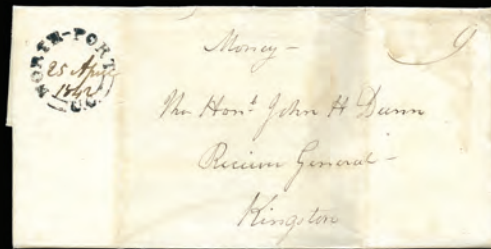 NORTH-PORT
25 April
1842
U.C.
Money —
9
The Honᵇ John H Dunn
Reciever General —
Kingston